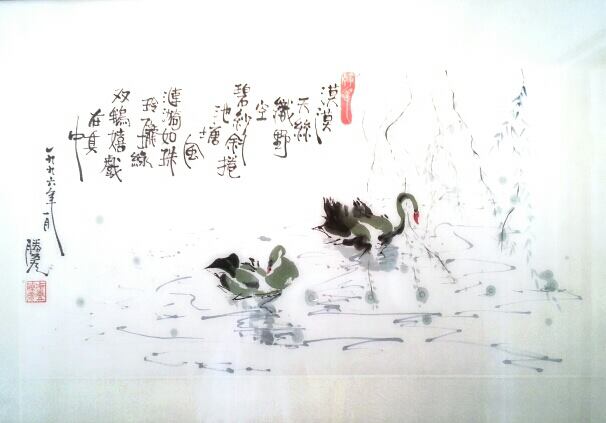 漠漠
天絲
織野
空
碧紗斜捲
池塘
風
漣漪如珠
玲瓏綠
双鵝嬉戲
在其
中
一九九六年一月